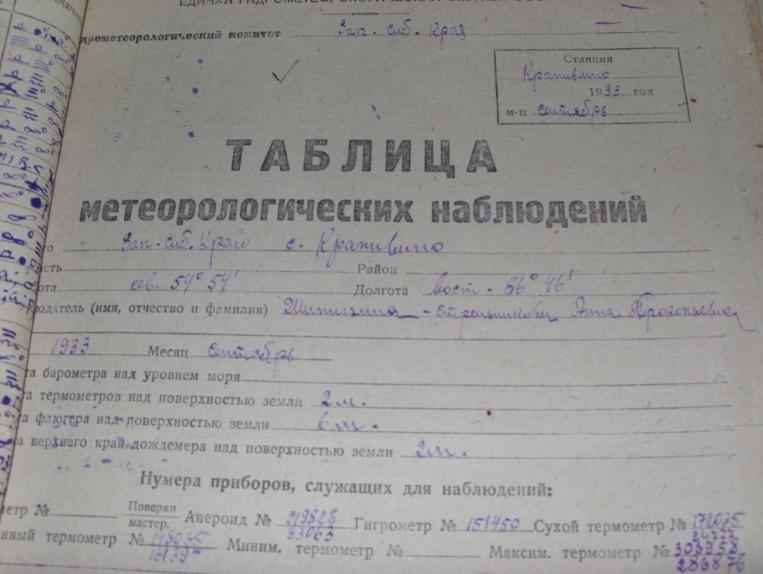 ЕДИНАЯ ГИДРОМЕТЕОРОЛОГИЧЕСКАЯ
дрометеорологический комитет Зап. Сиб. Края
Станция
Крапивино
1933 год
м-ц Сентябрь
ТАБЛИЦА
метеорологических наблюдений
Зап. Сиб. Края с. Крапивино
сть Район
ота сев. 54° 54' Долгота вост. 86° 46'
юдатель (имя, отчество и фамилия) Анна Прокопьевна
1933 Месяц Сентябрь
та барометра над уровнем моря
та термометров над поверхностью земли 2 м.
а флюгера над поверхностью земли 6 м.
а верхнего край дождемера над поверхностью земли 2 м.
Нумера приборов, служащих для наблюдений:
метр № Поверки мастер. Анероид № 219828 Гигрометр № 151450 Сухой термометр №
33063
нный термометр № Миним. термометр № Максим. термометр №
286876